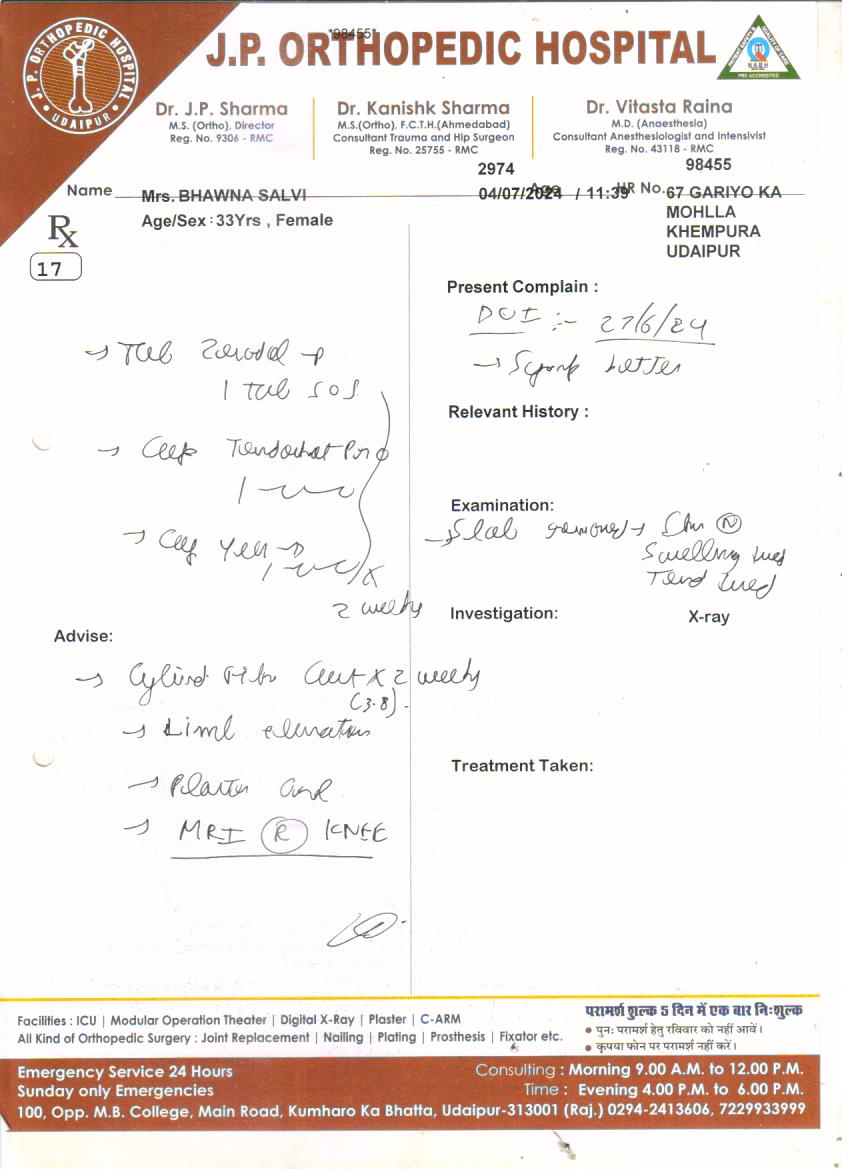 J. P. ORTHOPEDIC HOSPITAL
UDAIPUR
*98455*
J.P. ORTHOPEDIC HOSPITAL
NABH
PRE ACCREDITED
Dr. J.P. Sharma
M.S. (Ortho), Director
Reg. No. 9306 - RMC
Dr. Kanishk Sharma
M.S.(Ortho), F.C.T.H.(Ahmedabad)
Consultant Trauma and Hip Surgeon
Reg. No. 25755 - RMC
Dr. Vitasta Raina
M.D. (Anaesthesia)
Consultant Anesthesiologist and Intensivist
Reg. No. 43118 - RMC
2974
98455
Name Mrs. BHAWNA SALVI
Age 04/07/2024 / 11:39
HR No. 67 GARIYO KA
MOHLLA
KHEMPURA
UDAIPUR
Age/Sex : 33Yrs , Female
Rx
17
→ Tab
1 tab SOS
→ Cap
→ Cap
2 weeks
Advise:
→ Cast X 2 weeks
(3.8)
→ Limb elevation
→ Plaster
→ MRI (R) KNEE
Present Complain :
DOI :- 27/6/24
→ better
Relevant History :
Examination:
→ Slab removed → (N)
Swelling
Investigation:
X-ray
Treatment Taken:
Facilities : ICU | Modular Operation Theater | Digital X-Ray | Plaster | C-ARM
All Kind of Orthopedic Surgery : Joint Replacement | Nailing | Plating | Prosthesis | Fixator etc.
परामर्श शुल्क 5 दिन में एक बार निःशुल्क
● पुनः परामर्श हेतु रविवार को नहीं आवें।
● कृपया फोन पर परामर्श नहीं करें।
Emergency Service 24 Hours
Sunday only Emergencies
Consulting : Morning 9.00 A.M. to 12.00 P.M.
Time : Evening 4.00 P.M. to 6.00 P.M.
100, Opp. M.B. College, Main Road, Kumharo Ka Bhatta, Udaipur-313001 (Raj.) 0294-2413606, 7229933999